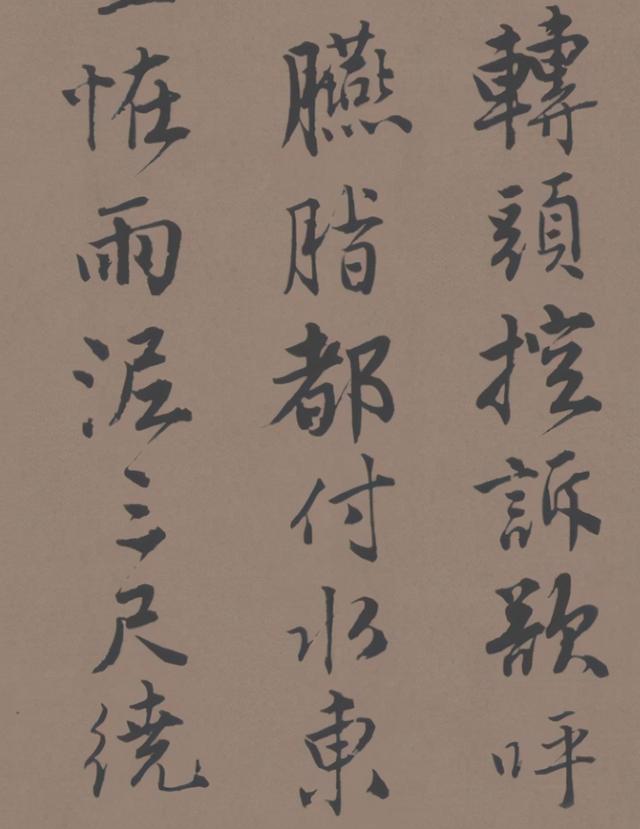 轉頭控訴歆呼
臙脂都付水東
恠雨泥三尺繞